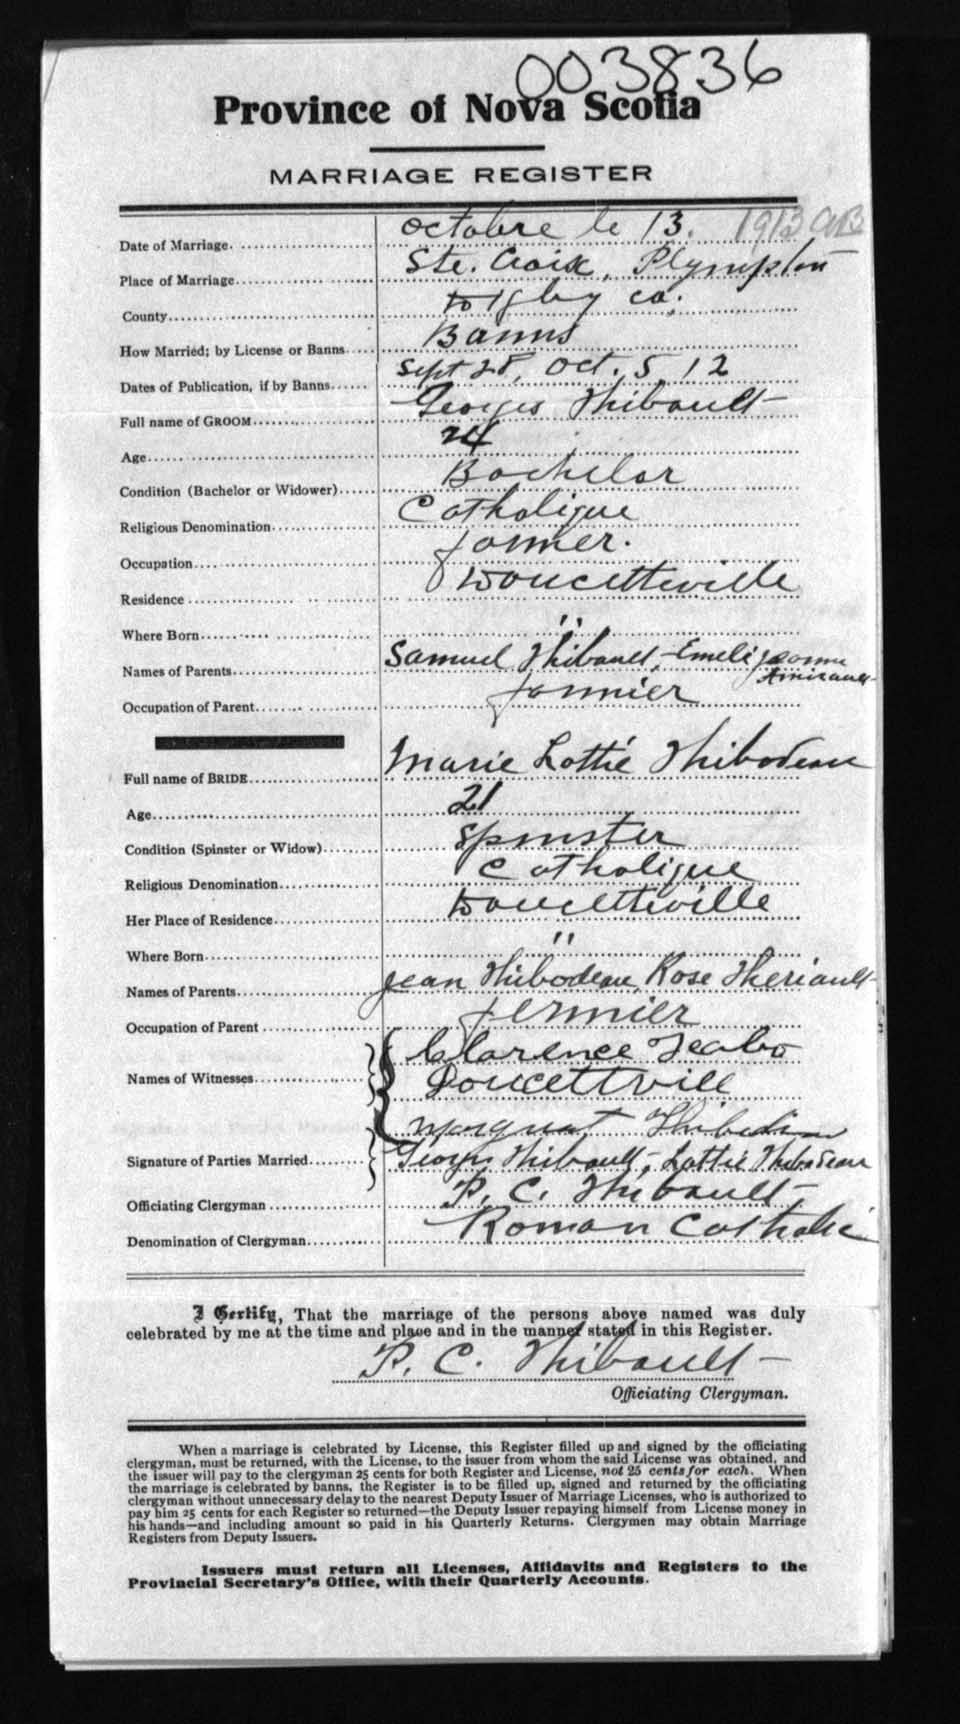 003836
Province of Nova Scotia
MARRIAGE REGISTER
Date of Marriage. octobre le 13. 1913
Place of Marriage Ste. Croix, Plympton
County Digby co.
How Married; by License or Banns Banns
Dates of Publication, if by Banns Sept 28, Oct. 5, 12
Full name of GROOM Georges Thibault
Age 24
Condition (Bachelor or Widower) Bachelor
Religious Denomination Catholique
Occupation farmer.
Residence Doucetteville
Where Born "
Names of Parents Samuel Thibault, Emeli Jeanne
Amirault
Occupation of Parent farmier
Full name of BRIDE Marie Lottie Thibodeau
Age 21
Condition (Spinster or Widow) Spinster
Religious Denomination Catholique
Her Place of Residence Doucetteville
Where Born "
Names of Parents Jean Thibodeau, Rose Theriault
Occupation of Parent fermier
Clarence
Names of Witnesses Doucettvill
Margaret
Signature of Parties Married Georges Thibault, Lottie Thibodeau
Officiating Clergyman P. C. Thibault,
Denomination of Clergyman Roman Catholic
I Certify, That the marriage of the persons above named was duly
celebrated by me at the time and place and in the manner stated in this Register.
P. C. Thibault
Officiating Clergyman.
When a marriage is celebrated by License, this Register filled up and signed by the officiating
clergyman, must be returned, with the License, to the issuer from whom the said License was obtained, and
the issuer will pay to the clergyman 25 cents for both Register and License, not 25 cents for each. When
the marriage is celebrated by banns, the Register is to be filled up, signed and returned by the officiating
clergyman without unnecessary delay to the nearest Deputy Issuer of Marriage Licenses, who is authorized to
pay him 25 cents for each Register so returned—the Deputy Issuer repaying himself from License money in
his hands—and including amount so paid in his Quarterly Returns. Clergymen may obtain Marriage
Registers from Deputy Issuers.
Issuers must return all Licenses, Affidavits and Registers to the
Provincial Secretary's Office, with their Quarterly Accounts.